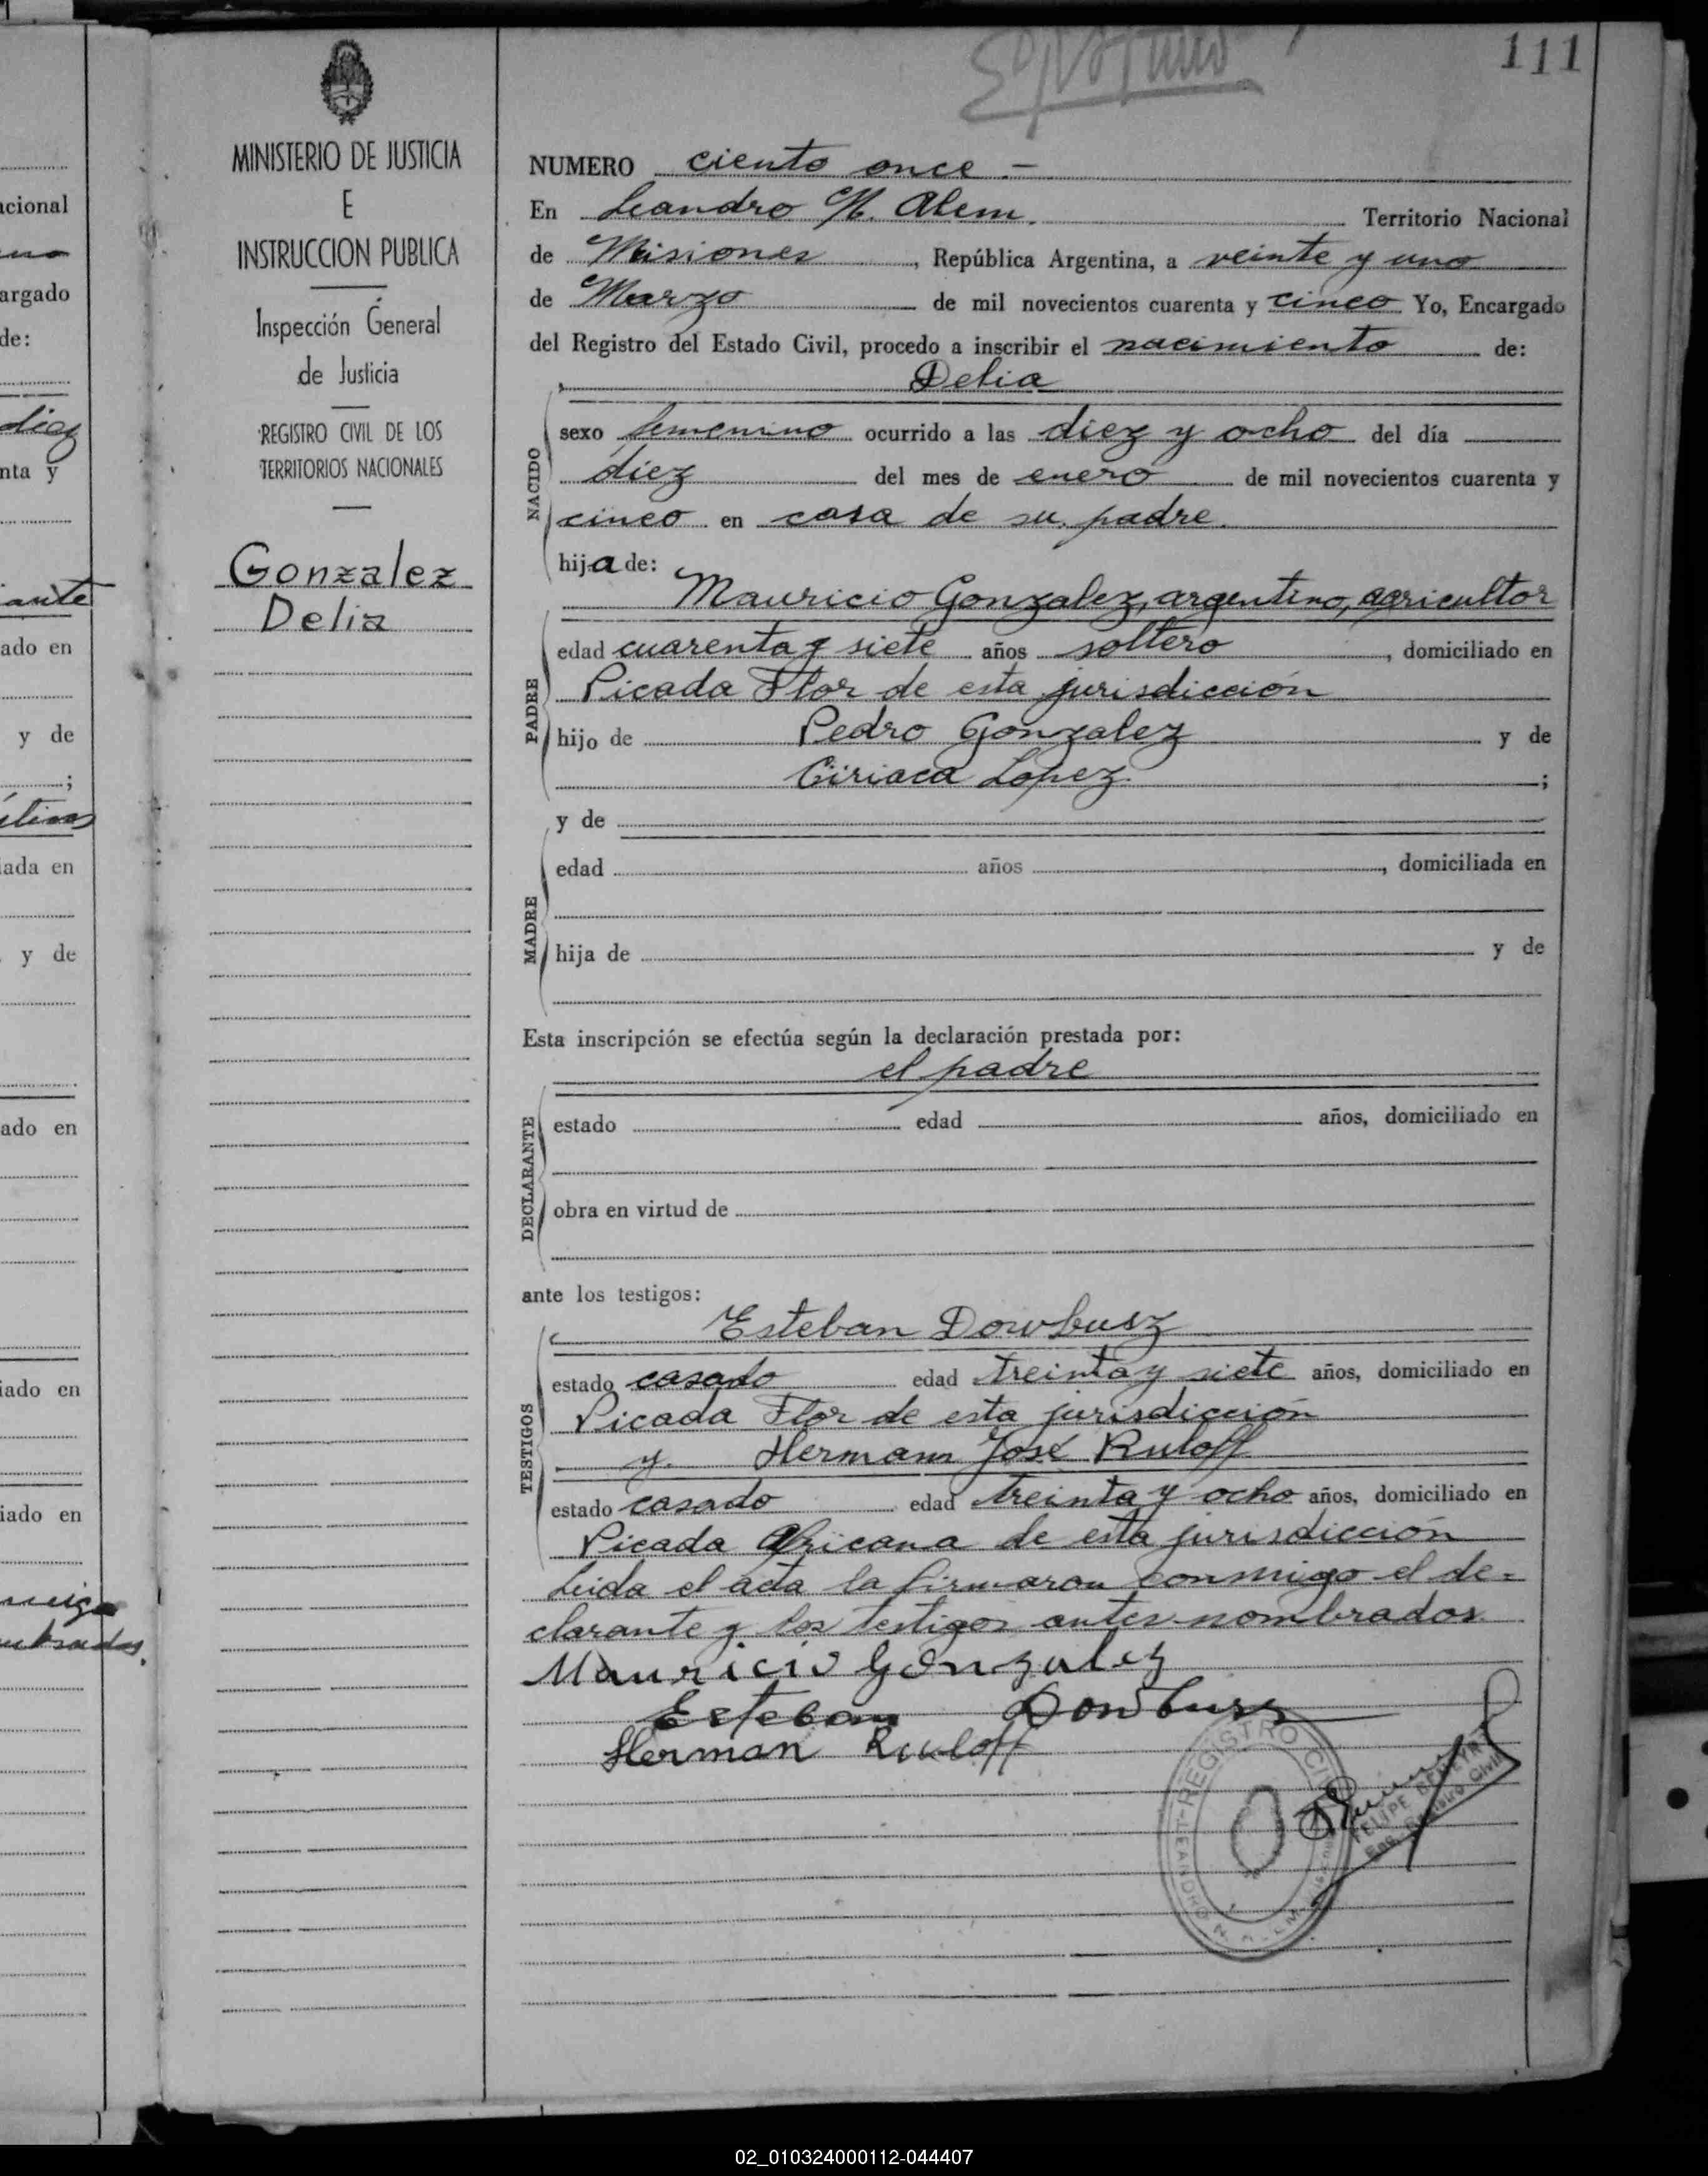 111
MINISTERIO DE JUSTICIA
E
INSTRUCCION PUBLICA
Inspección General
de Justicia
REGISTRO CIVIL DE LOS
TERRITORIOS NACIONALES
Gonzalez
Delia
NUMERO ciento once.-
En Leandro N. Alem. Territorio Nacional
de Misiones, República Argentina, a veinte y uno
de Marzo de mil novecientos cuarenta y cinco Yo, Encargado
del Registro del Estado Civil, procedo a inscribir el nacimiento de:
NACIDO
Delia
sexo femenino ocurrido a las diez y ocho del día
diez del mes de enero de mil novecientos cuarenta y
cinco en casa de su padre.
hija de:
PADRE
Mauricio Gonzalez, argentino, agricultor
edad cuarenta y siete años soltero, domiciliado en
Picada Flor de esta jurisdicción
hijo de Pedro Gonzalez y de
Ciriaca Lopez.;
MADRE
y de
edad años, domiciliada en
hija de y de
Esta inscripción se efectúa según la declaración prestada por:
DECLARANTE
el padre
estado edad años, domiciliado en
obra en virtud de
ante los testigos:
TESTIGOS
Esteban Dowbusz
estado casado edad treinta y siete años, domiciliado en
Picada Flor de esta jurisdicción
y. Hermann José Ruloff
estado casado edad treinta y ocho años, domiciliado en
Picada Africana de esta jurisdicción
Leida el acta la firmaron conmigo el de=
clarante y los testigos antes nombrados.
Mauricio Gonzalez
Esteban Dowbusz
Herman Ruloff
REGISTRO CIVIL
LEANDRO N. ALEM
FELIPE
Enc. Registro Civil
acional
argado
de:
diez
nta y
ante
ado en
y de
;
iada en
y de
ado en
iado en
iado en
02_010324000112-044407